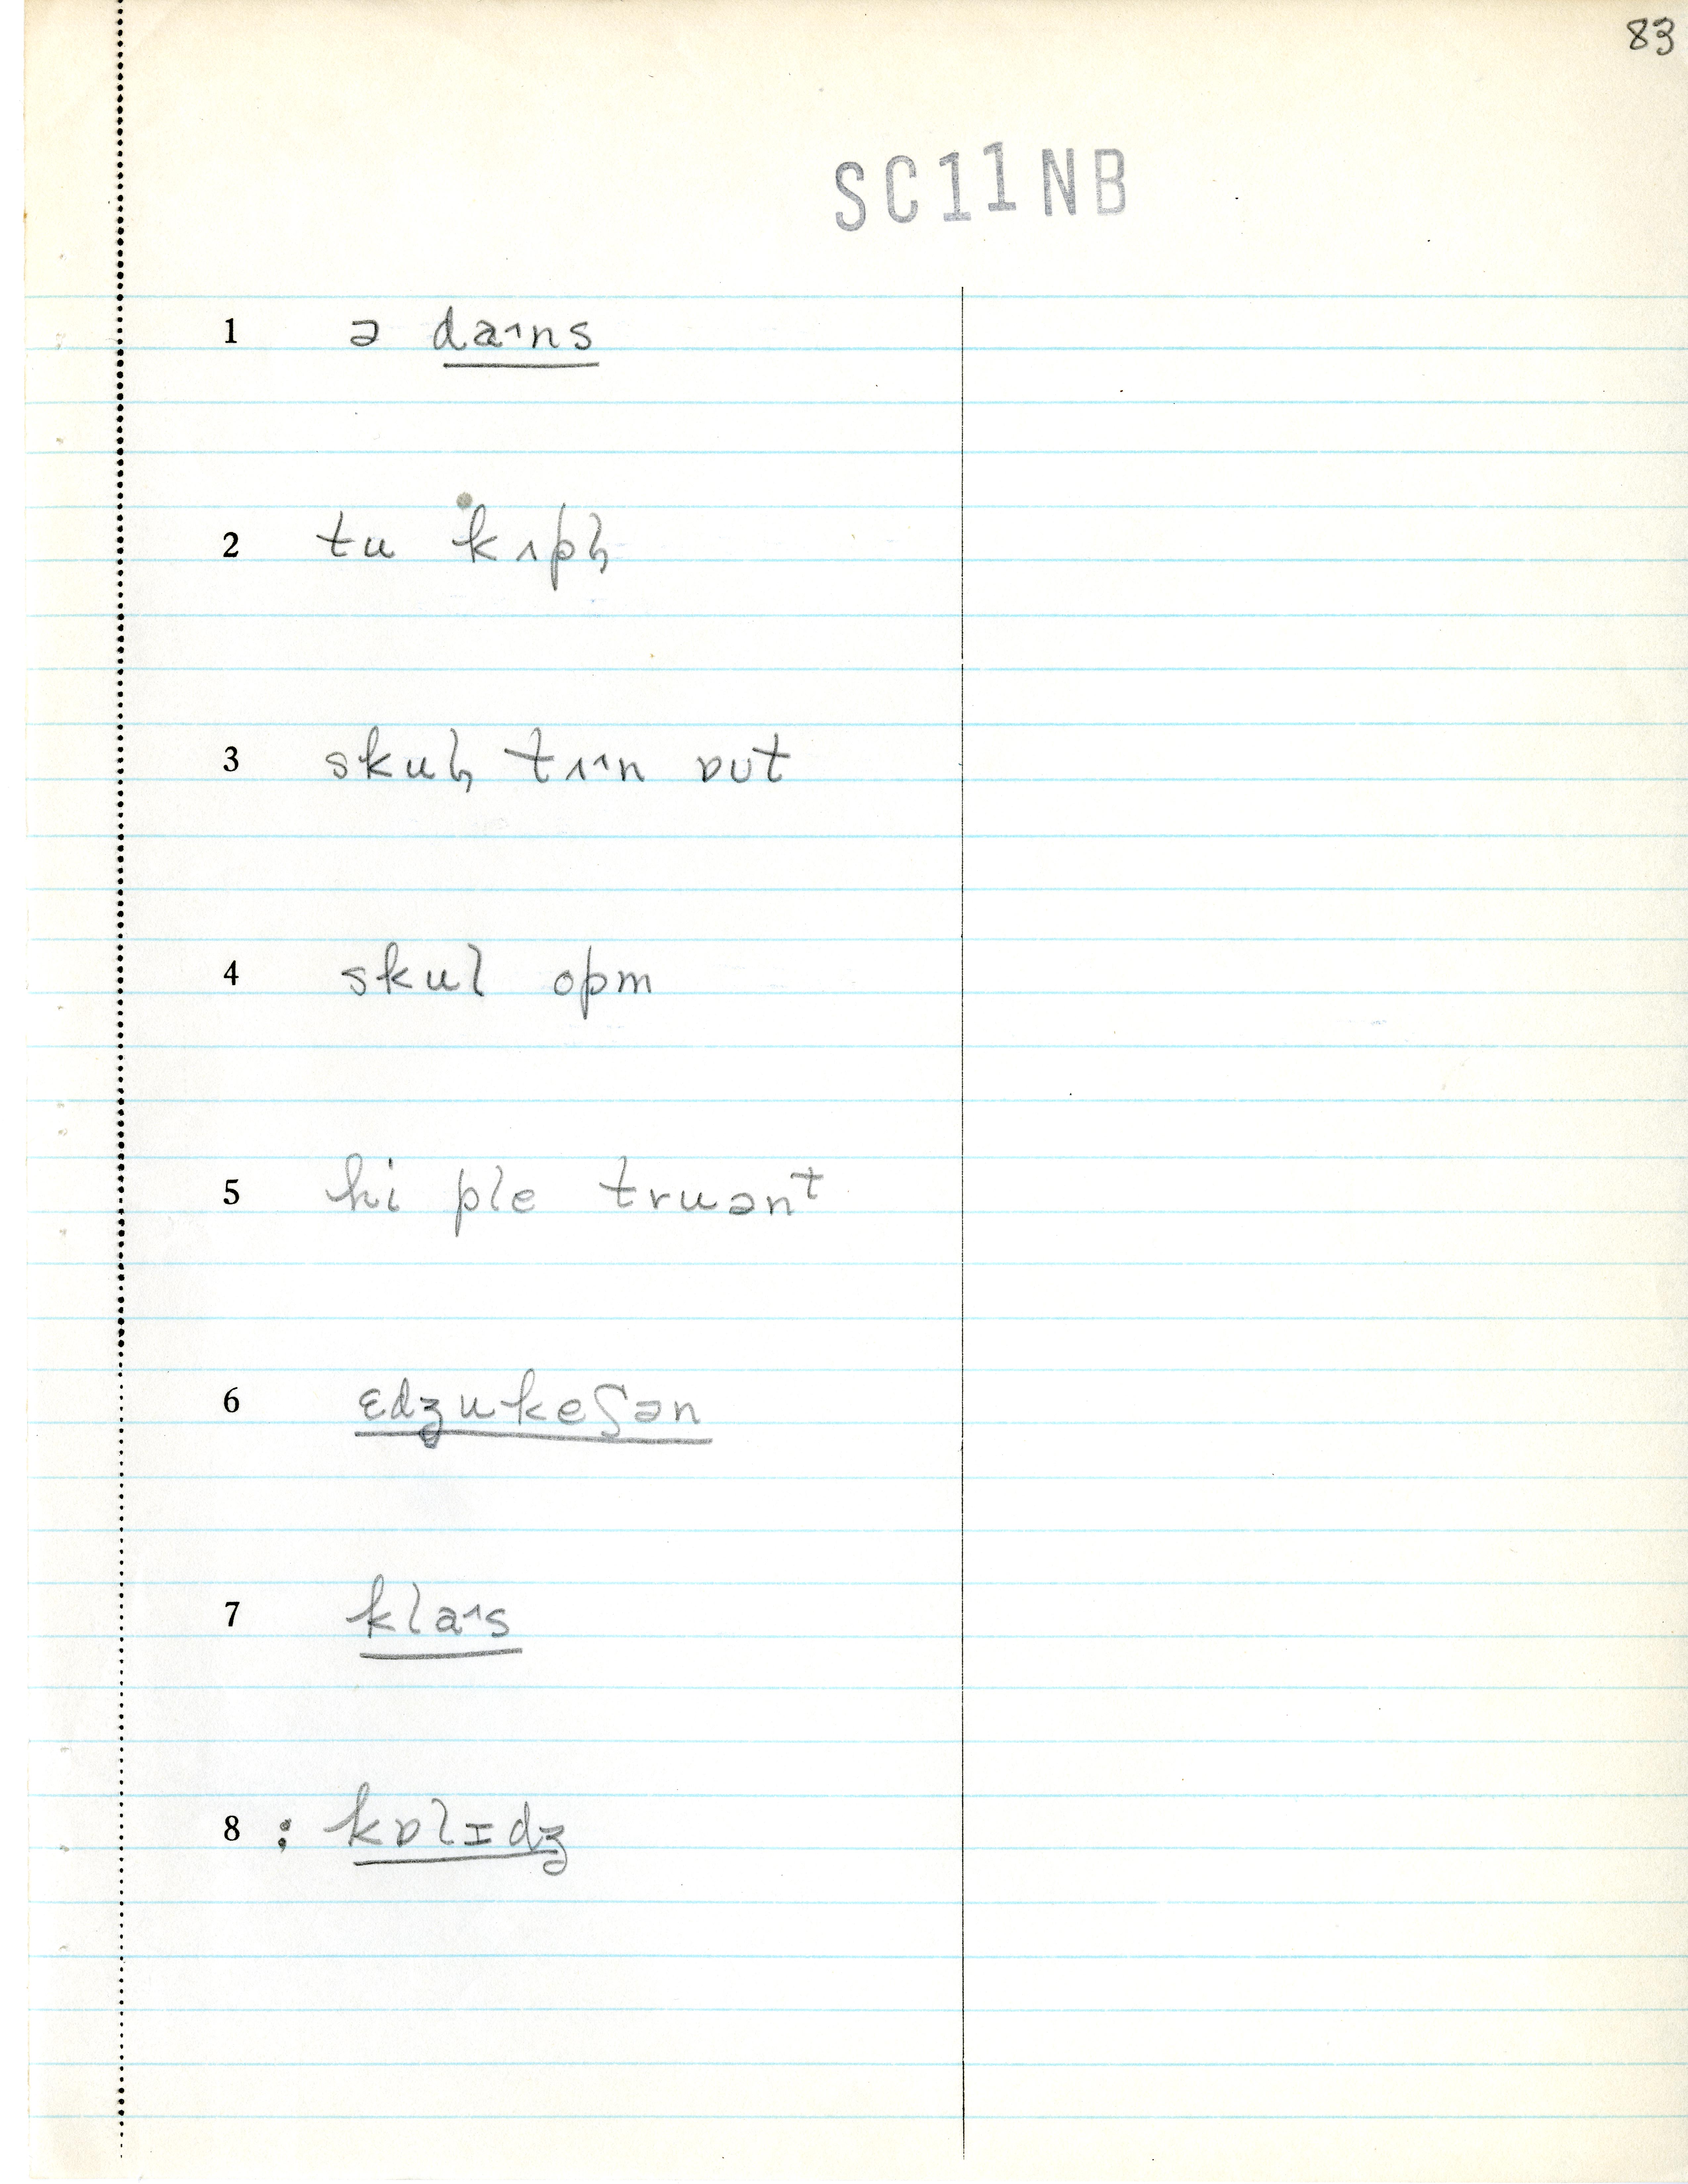 83
SC11NB
1 ə daˑ^ns
2 tu kʌpl̩
3 skul̩ tɜˑ^n ɒut
4 skul opm
5 hi ple truənᵗ
6 ɛdʒukeʃən
7 klaˑ^s
8 : kɒlɪdʒ